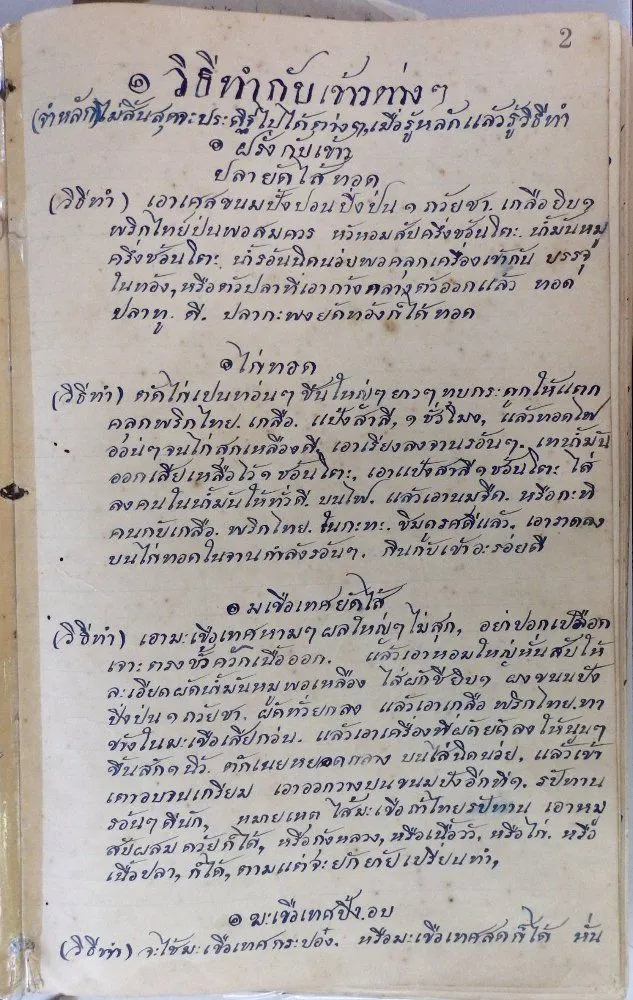 2
๏ วิธีทำกับเข้าต่างๆ
(จำหลักไม่สิ้นสุดจะประดิฐไปได้ต่างๆ, เมื่อรู้หลักแล้วรู้วิธีทำ
๏ ฝรั่งกับเข้า
ปลายัดไส้ทอด
(วิธีทำ) เอาเศสขนมปังปอนปิ้งป่น ๑ ถ้วยชา. เกลือยิบ ๑
พริกไทยป่นพอสมควร หัวหอมสับครึ่งช้อนโต๊ะ น้ำมันหมู
ครึ่งช้อนโต๊ะ น้ำร้อนนิดน่อยพอคลุกเครื่องเข้ากัน บรรจุ
ในท้อง, หรือตัวปลาที่เอาก้างกลางตัวออกแล้ว ทอด
ปลาทู. ดี. ปลากะพงยัดท้องก็ได้ทอด
๏ ไก่ทอด
(วิธีทำ) ตัดไก่เปนท่อนๆ ชิ้นใหญ่ๆยาวๆ ทุบกระดูกให้แตก
คลุกพริกไทย. เกลือ. แป้งสาลี, ๑ ชั่วโมง, แล้วทอดไฟ
อ่อนๆจนไก่สุกเหลืองดี. เอาเรียงลงจานร้อนๆ. เทน้ำมัน
ออกเสียเหลือไว้ ๑ ช้อนโต๊ะ. เอาแป้งสาลี ๑ ช้อนโต๊ะ ใส่
ลงคนในน้ำมันให้ทั่วดี. บนไฟ. แล้วเอานมรีด. หรือกะทิ
คนกับเกลือ. พริกไทย. ในกะทะ. ชิมดูรศดีแล้ว. เอาราดลง
บนไก่ทอดในจานกำลังร้อนๆ. กินกับเข้าอะร่อยดี
๏ มะเขือเทศยัดไส้
(วิธีทำ) เอามะเขือเทศหามๆผลใหญ่ๆไม่สุก, อย่าปอกเปลือก
เจาะตรงขั้วควักเนื้อออก. แล้วเอาหอมใหญ่หั่นสับให้
ละเอียดผัดน้ำมันหมูพอเหลือง ใส่ผักชียิบ ๑ ผงขนมปัง
ปิ้งป่น ๑ ถ้วยชา. ผัดทั่วยกลง แล้วเอาเกลือ พริกไทย. ทา
ข้างในมะเขือเสียก่อน. แล้วเอาเครื่องที่ผัดยัดลงให้นูนๆ
ขึ้นสัก ๑ นิ้ว. ตักเนยหยอดกลาง บนไส้นิดน่อย. แล้วเข้า
เตาอบจนเกรียม เอาออกวางบนขนมปังอีกที ๑. รับทาน
ร้อนๆดีนัก, หมายเหต ไส้มะเขือถ้าไทยรับทาน เอาหมู
สับผสมด้วยก็ได้, หรือกุ้งหลวง, หรือเนื้อวัว, หรือไก่. หรือ
เนื้อปลา, ก็ได้, ตามแต่จะยักย้ายเปลี่ยนทำ,
๏ มะเขือเทศปิ้ง. อบ
(วิธีทำ) จะใช้มะเขือเทศกระป๋อง. หรือมะเขือเทศสดก็ได้ หั่น